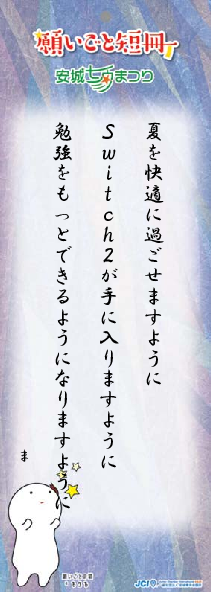 願いごと短冊
安城七夕まつり
夏を快適に過ごせますように
Switch2が手に入りますように
勉強をもっとできるようになりますように
ま
願いごと短冊
JCI